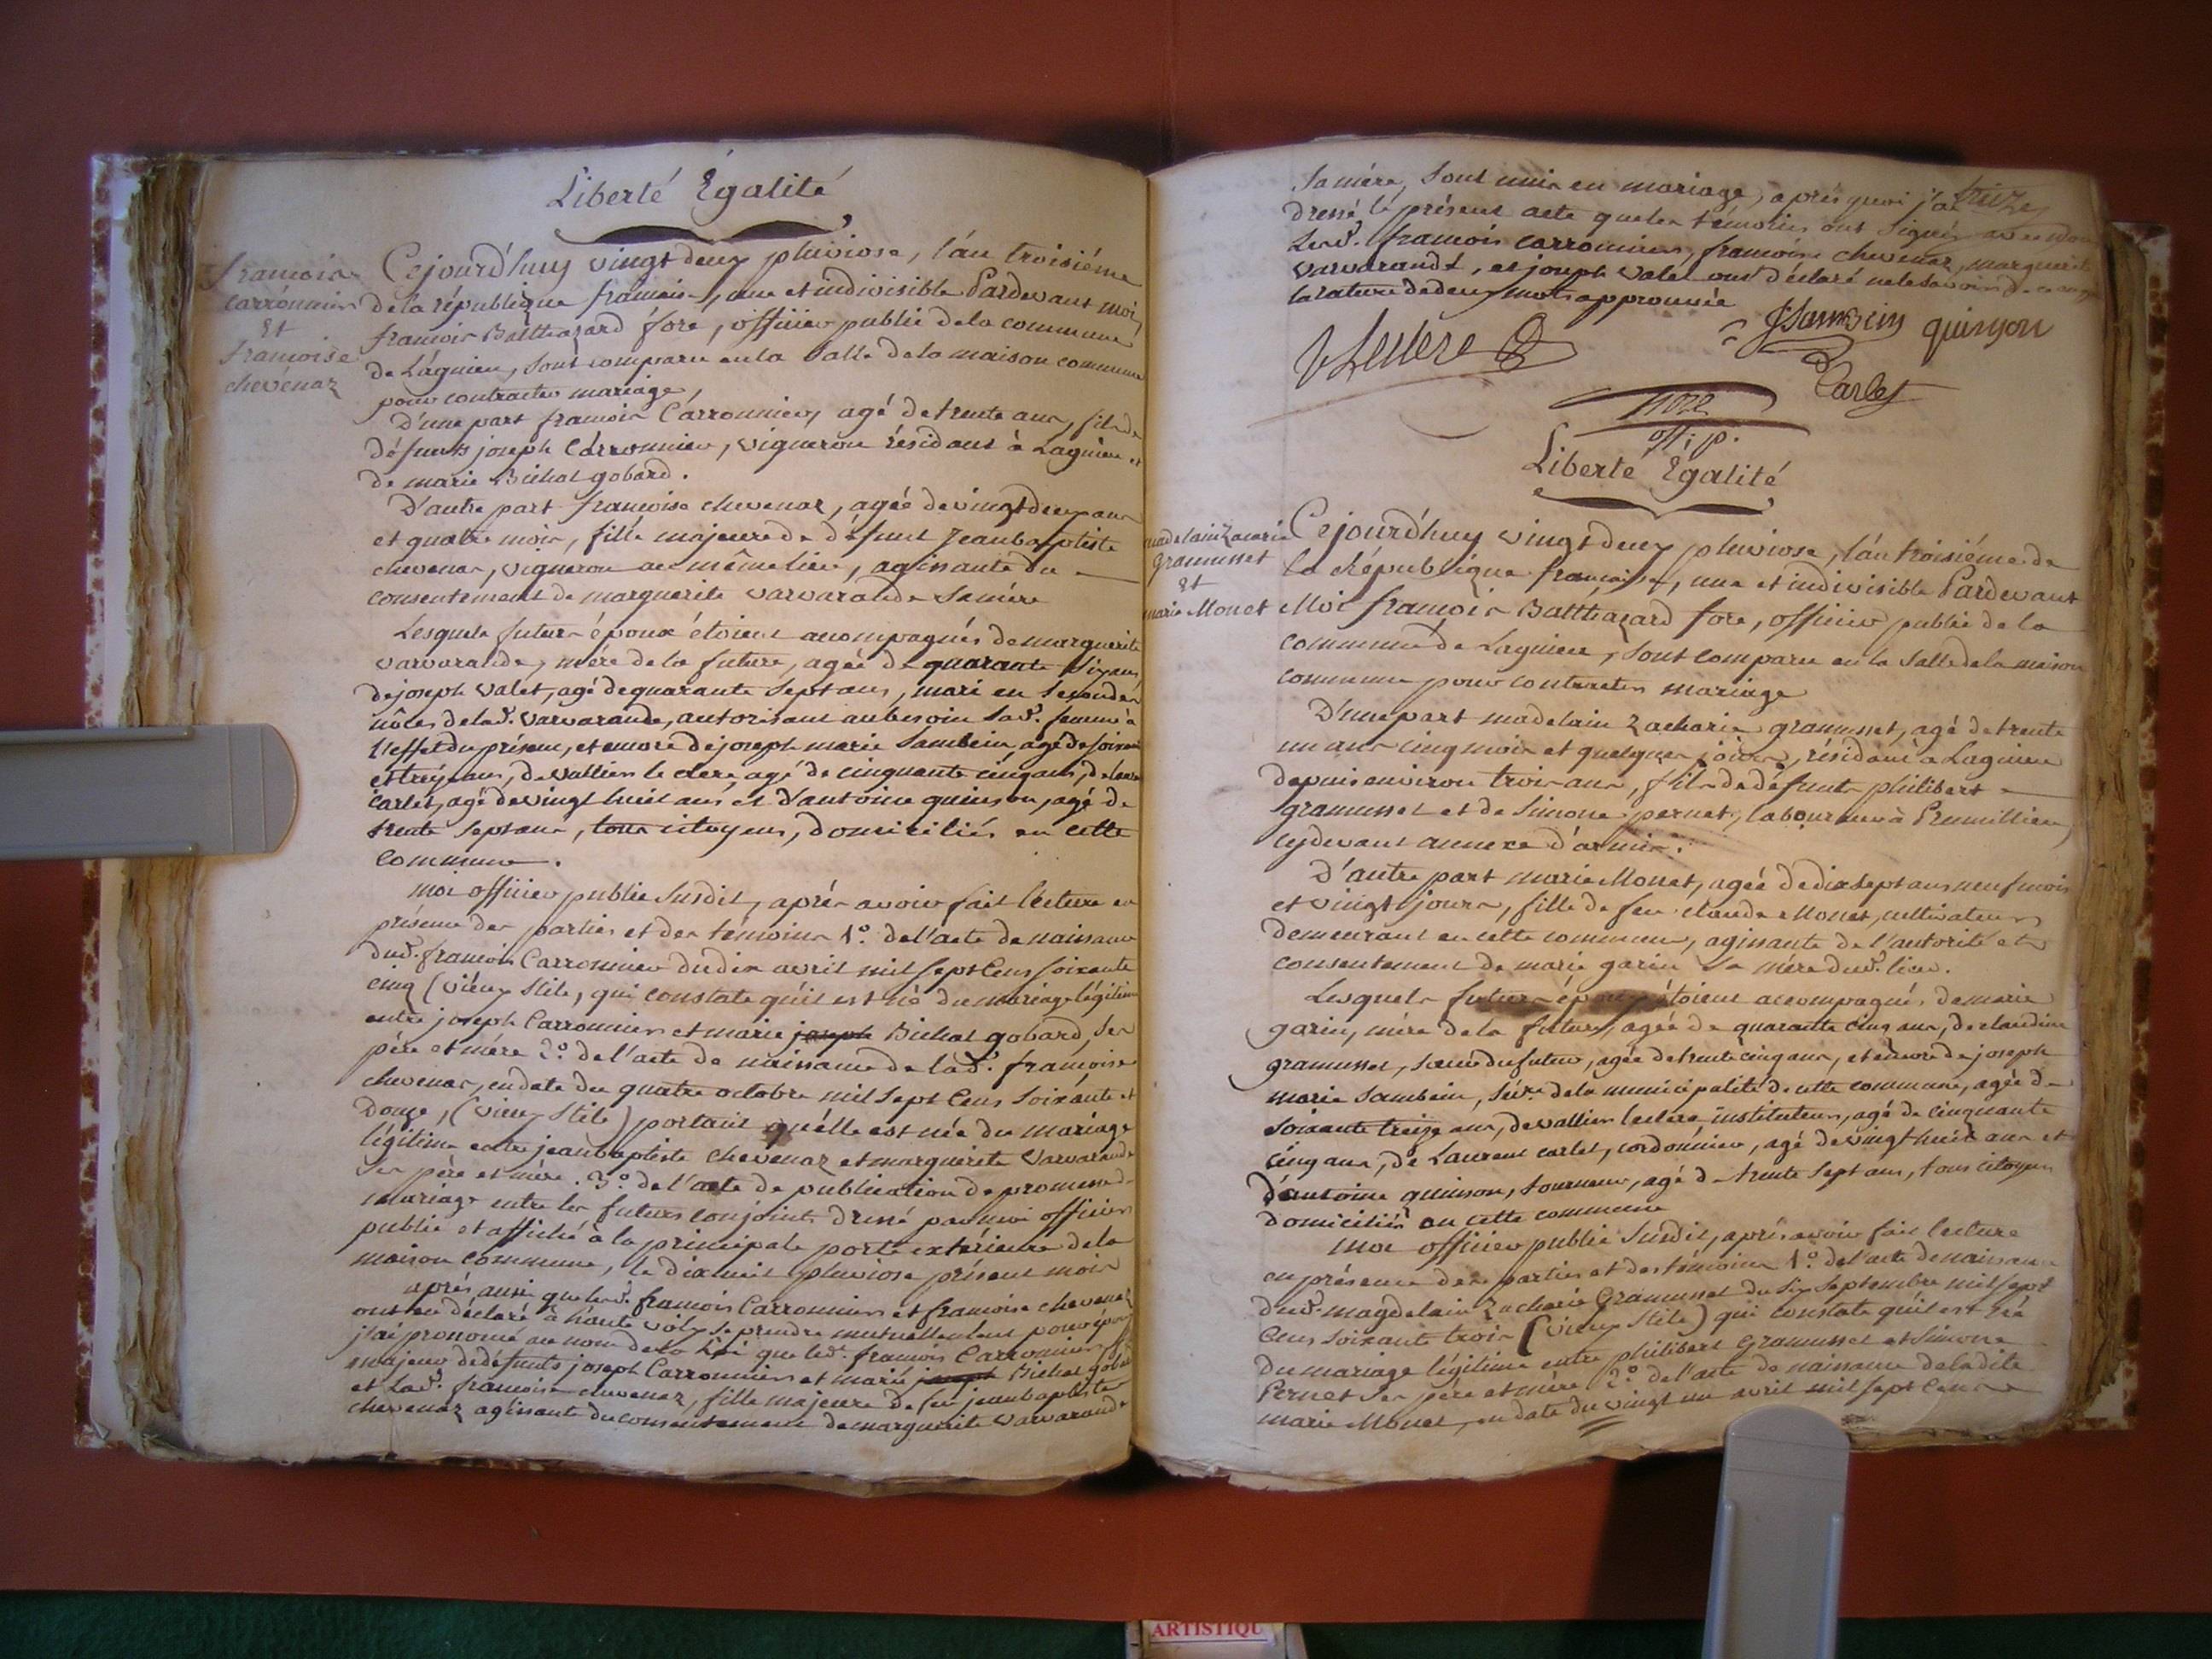 Liberté Égalité
francois
carronnier
Et
francoise
chevénaz
Cejourd'huy vingt deux pluviose, l'an troisiéme
de la république francaise, une et indivisible Pardevant moi,
francois Balthazard fore, officier public de la commune
de Lagnieu, sont comparu en la Salle de la maison commune
pour contracter mariage,
D'une part francois Carronnier, agé de trente ans, fils de
défunts joseph Carronnier, vigneron résidant à Lagnieu et
de marie Bichat gobard.
D'autre part francoise chevenaz, agée de vingt deux ans
et quatre mois, fille majeure de défunt Jean baptiste
chevenaz, vigneron au même lieu, agissante du
consentement de marguerite varvarande Sa mére
Lesquels futurs époux étoient accompagnés de marguerite
varvarande, mére de la future, agée de quarante Six ans,
de joseph valet, agé de quarante Sept ans, mari en Secondes
nôces de lad. varvarande, autorisant au besoin Sad. femme à
l'effet du présent, et encore de joseph marie Sambein, agé de soixante
et treize ans, de vallier le clerc, agé de cinquante cinq ans, de laurent
carlet, agé de vingt huit ans et d'antoine quinson, agé de
trente Sept ans, tous citoyens, domiciliés en cette
commune.
moi officier public Susdit, aprés avoir fait lecture en
présence des parties et des témoins 1º. de l'acte de naissance
dud. francois Carronnier du dix avril mil Sept Cens soixante
cinq (vieux Stile, qui constate qu'il est né du mariage légitime
entre joseph Carronnier et marie joseph Bichat gobard, Ses
pére et mére 2º. de l'acte de naissance de lad. francoise
chevenaz, en date du quatre octobre mil Sept Cens Soixante et
Douze, (vieux Stile) portant qu'élle est née du mariage
légitime entre jean baptiste chevenaz et marguerite Varvarande
Ses pére et mére. 3º. de l'acte de publication de promesse de
mariage entre les futurs conjoints dressé par moi officier
public et affiché à la principale porte extérieure de la
maison commune, le dix huit pluviose présent mois
aprés aussi que led. francois Carronnier et francoise chevenaz
ont eu déclaré à haute voix se prendre mutuellement pour époux
j'ai prononcé au nom de la Loi que led. francois Carronnier fils
majeur de défunts joseph Carronnier et marie joseph Bichat gobard
et Lad. francoise chevenaz, fille majeure de feu jean baptiste
chevenaz agissante du consentement de marguerite varvarande
Sa mére, Sont unis en mariage, aprés quoi j'ai
treize
dressé le présent acte que les témoins ont Signés avec moi
Led. francois carronnier, francoise chevenaz, marguerite
varvarandt, et joseph valet ont déclaré ne le savoir de ce enquis
la rature de deux mots approuvée
V Leclerc
JSambein
quinson
Carlet
fore
off. p.
Liberte Égalité
madelain Zacarie
Gramusset
Et
marie Monet
Cejourd'huy vingt deux pluviose, l'an troisiéme de
la République francaise, une et indivisible Pardevant
Moi francois Balthazard fore, officier public de la
commune de Lagnieu, sont comparu en la Salle de la maison
commune pour contracter mariage
D'une part madelain Zacharie gramusset, agé de trente
un ans cinq mois et quelques jours, résidant à Lagnieu
depuis environ trois ans, fils de défunts philibert
gramusset et de Simone pernet, laboureur à Premillieu,
cy devant annexe d'armix.
D'autre part marie Monet, agée de dix sept ans neuf mois
et vingt jours, fille de feu claude Monet, cultivateur
demeurant en cette commune, agissante de l'autorité et
consentement de marie garin Sa mére dud. lieu.
Lesquels futurs époux étoient accompagnés de marie
garin, mére de la future, agée de quarante cinq ans, de claudine
gramusset, Sœur du futur, agée de trente cinq ans, et encore de joseph
marie Sambein, Sécre. de la municipalité de cette commune, agée de
Soixante treize ans, de vallier leclerc instituteur, agé de cinquante
cinq ans, de Laurent carlet, cordonnier, agé de vingt huit ans et
d'antoine quinson, tourneur, agé de trente Sept ans, tous citoyens
domiciliés en cette commune
Moi officier public Susdit, aprés avoir fait lecture
en présence des parties et des témoins 1º. de l'acte de naissance
dud. magdelain Zacharie Gramusset du Six Septembre mil Sept
Cens soixante trois (vieux Stile) qui constate qu'il est né
du mariage légitime entre philibert Gramusset et Simone
Pernet Ses pére et mére 2º. de l'acte de naissance de ladite
marie Monet, en date du vingt un avril mil sept Cens
ARTISTIQU